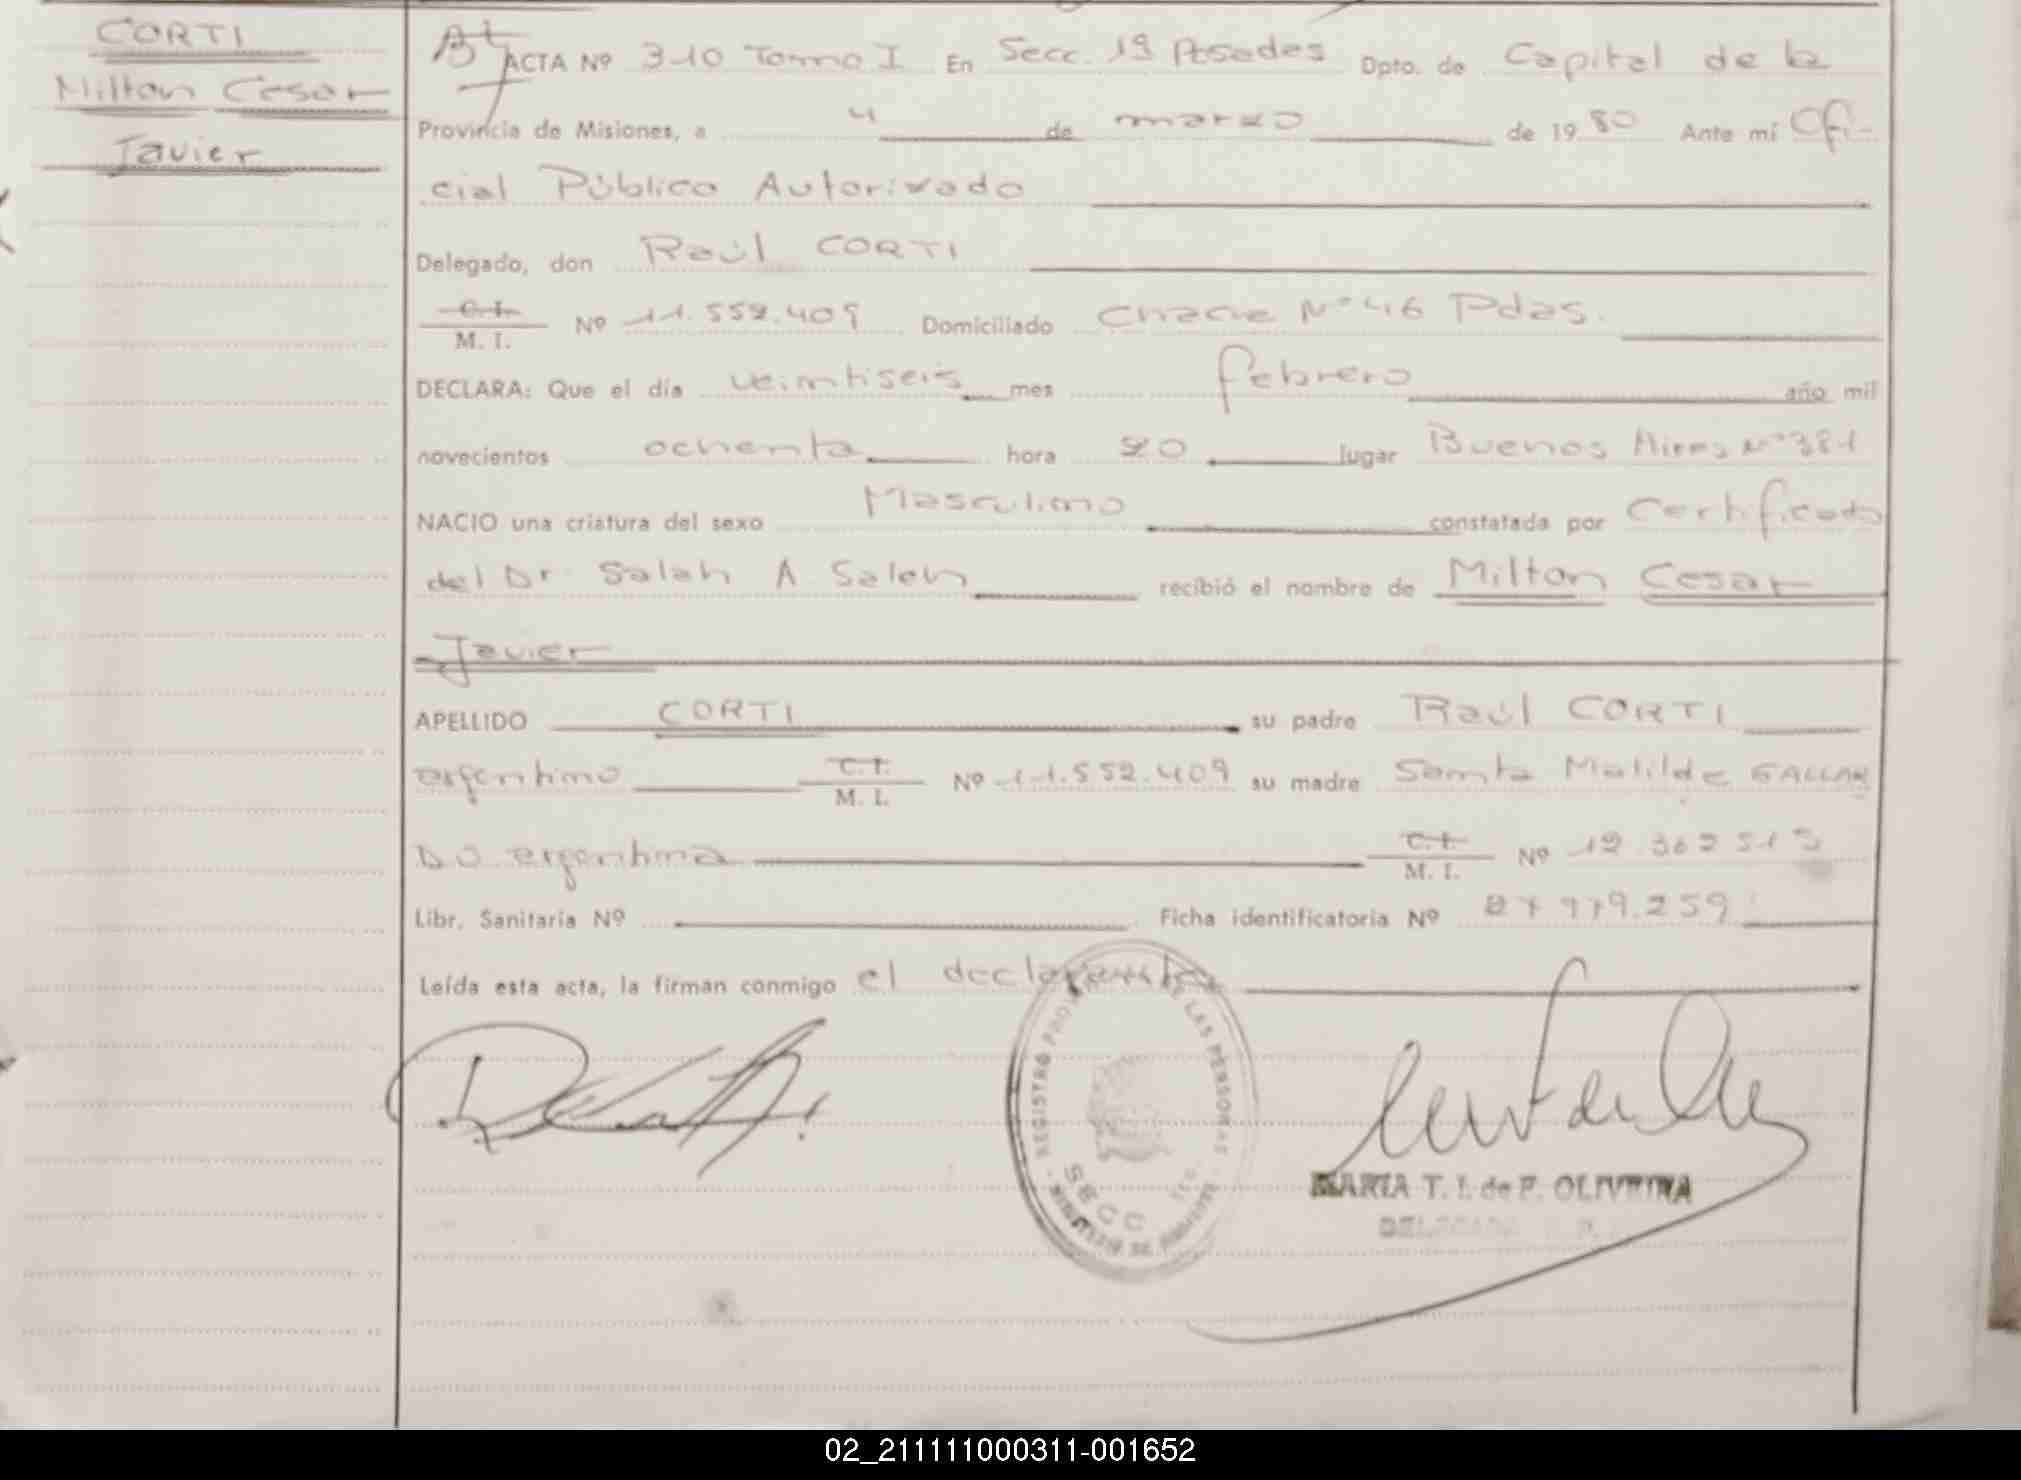 CORTI
Milton Cesar
Javier
ACTA Nº 310 Tomo I En Secc. 1ª Posadas Dpto. de Capital de la
Provincia de Misiones, a 4 de marzo de 1980 Ante mí Ofi-
cial Público Autorizado
Delegado, don Raúl CORTI
C. I.
M. I. Nº 11.552.409 Domiciliado Chacra Nº 46 Pdas.
DECLARA: Que el día veintiseis mes febrero año mil
novecientos ochenta hora 20 lugar Buenos Aires Nº 381
NACIO una criatura del sexo Masculino constatada por Certificado
del Dr. Salah A Saleh recibió el nombre de Milton Cesar
Javier
APELLIDO CORTI su padre Raúl CORTI
argentino C. I.
M. I. Nº 11.552.409 su madre Santa Matilde GALLAR
DO argentina C. I.
M. I. Nº 12.362.513
Libr. Sanitaria Nº Ficha identificatoria Nº 27.979.259
Leída esta acta, la firman conmigo el declarante
REGISTRO DE LAS PERSONAS
SECC
MARIA T. I. de F. OLIVEIRA
DELEGADA
02_211111000311-001652